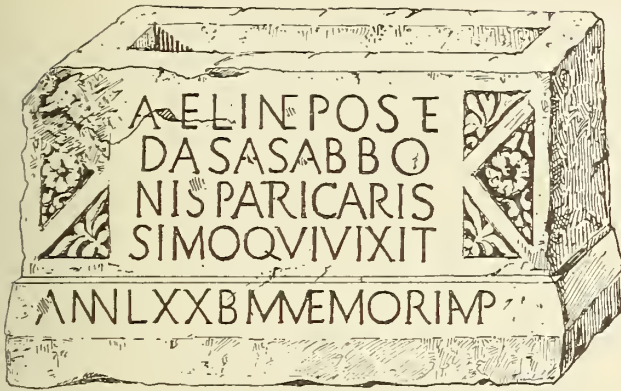 AELINEPOSET
DASASABBO
NISPATRICARIS
SIMOQVIVIXIT
ANNLXXBMMEMORIAMP